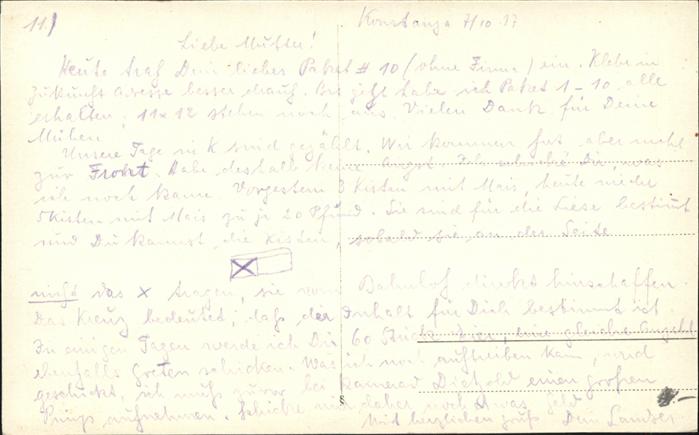 11)
Konstanza 7/10.17
Liebe Mutter!
Heute traf Dein liebes Paket # 10 (ohne Firma) ein. Klebe in
Zukunft Adresse besser drauf. Bis jetzt habe ich Paket 1-10 alle
erhalten; 11 x 12 stehen noch aus. Vielen Dank für Deine
Mühen.
Unsere Tage in K sind gezählt. Wir kommen fort, aber nicht
zur Front. Habe deshalb keine Angst. Ich schreibe Dir, was
ich noch kann. Vorgestern 3 Kisten mit Mais, heute wieder
5 Kisten mit Mais zu je 20 Pfund. Sie sind für die Liese bestimmt
und Du kannst die Kisten, sobald sie an der Seite
nicht das x tragen, sie vom Bahnhof direkt hinschaffen.
Das Kreuz bedeutet, daß der Inhalt für Dich bestimmt ist.
In einigen Tagen werde ich Dir 60 Stück Eier, eine gleiche Anzahl
ebenfalls schicken. Was ich noch auftreiben kann, wird
geschickt, ich muß zuvor bei Kamerad einen großen
Pump aufnehmen. Schicke mir daher noch etwas Geld
Mit herzlichen Gruß Dein